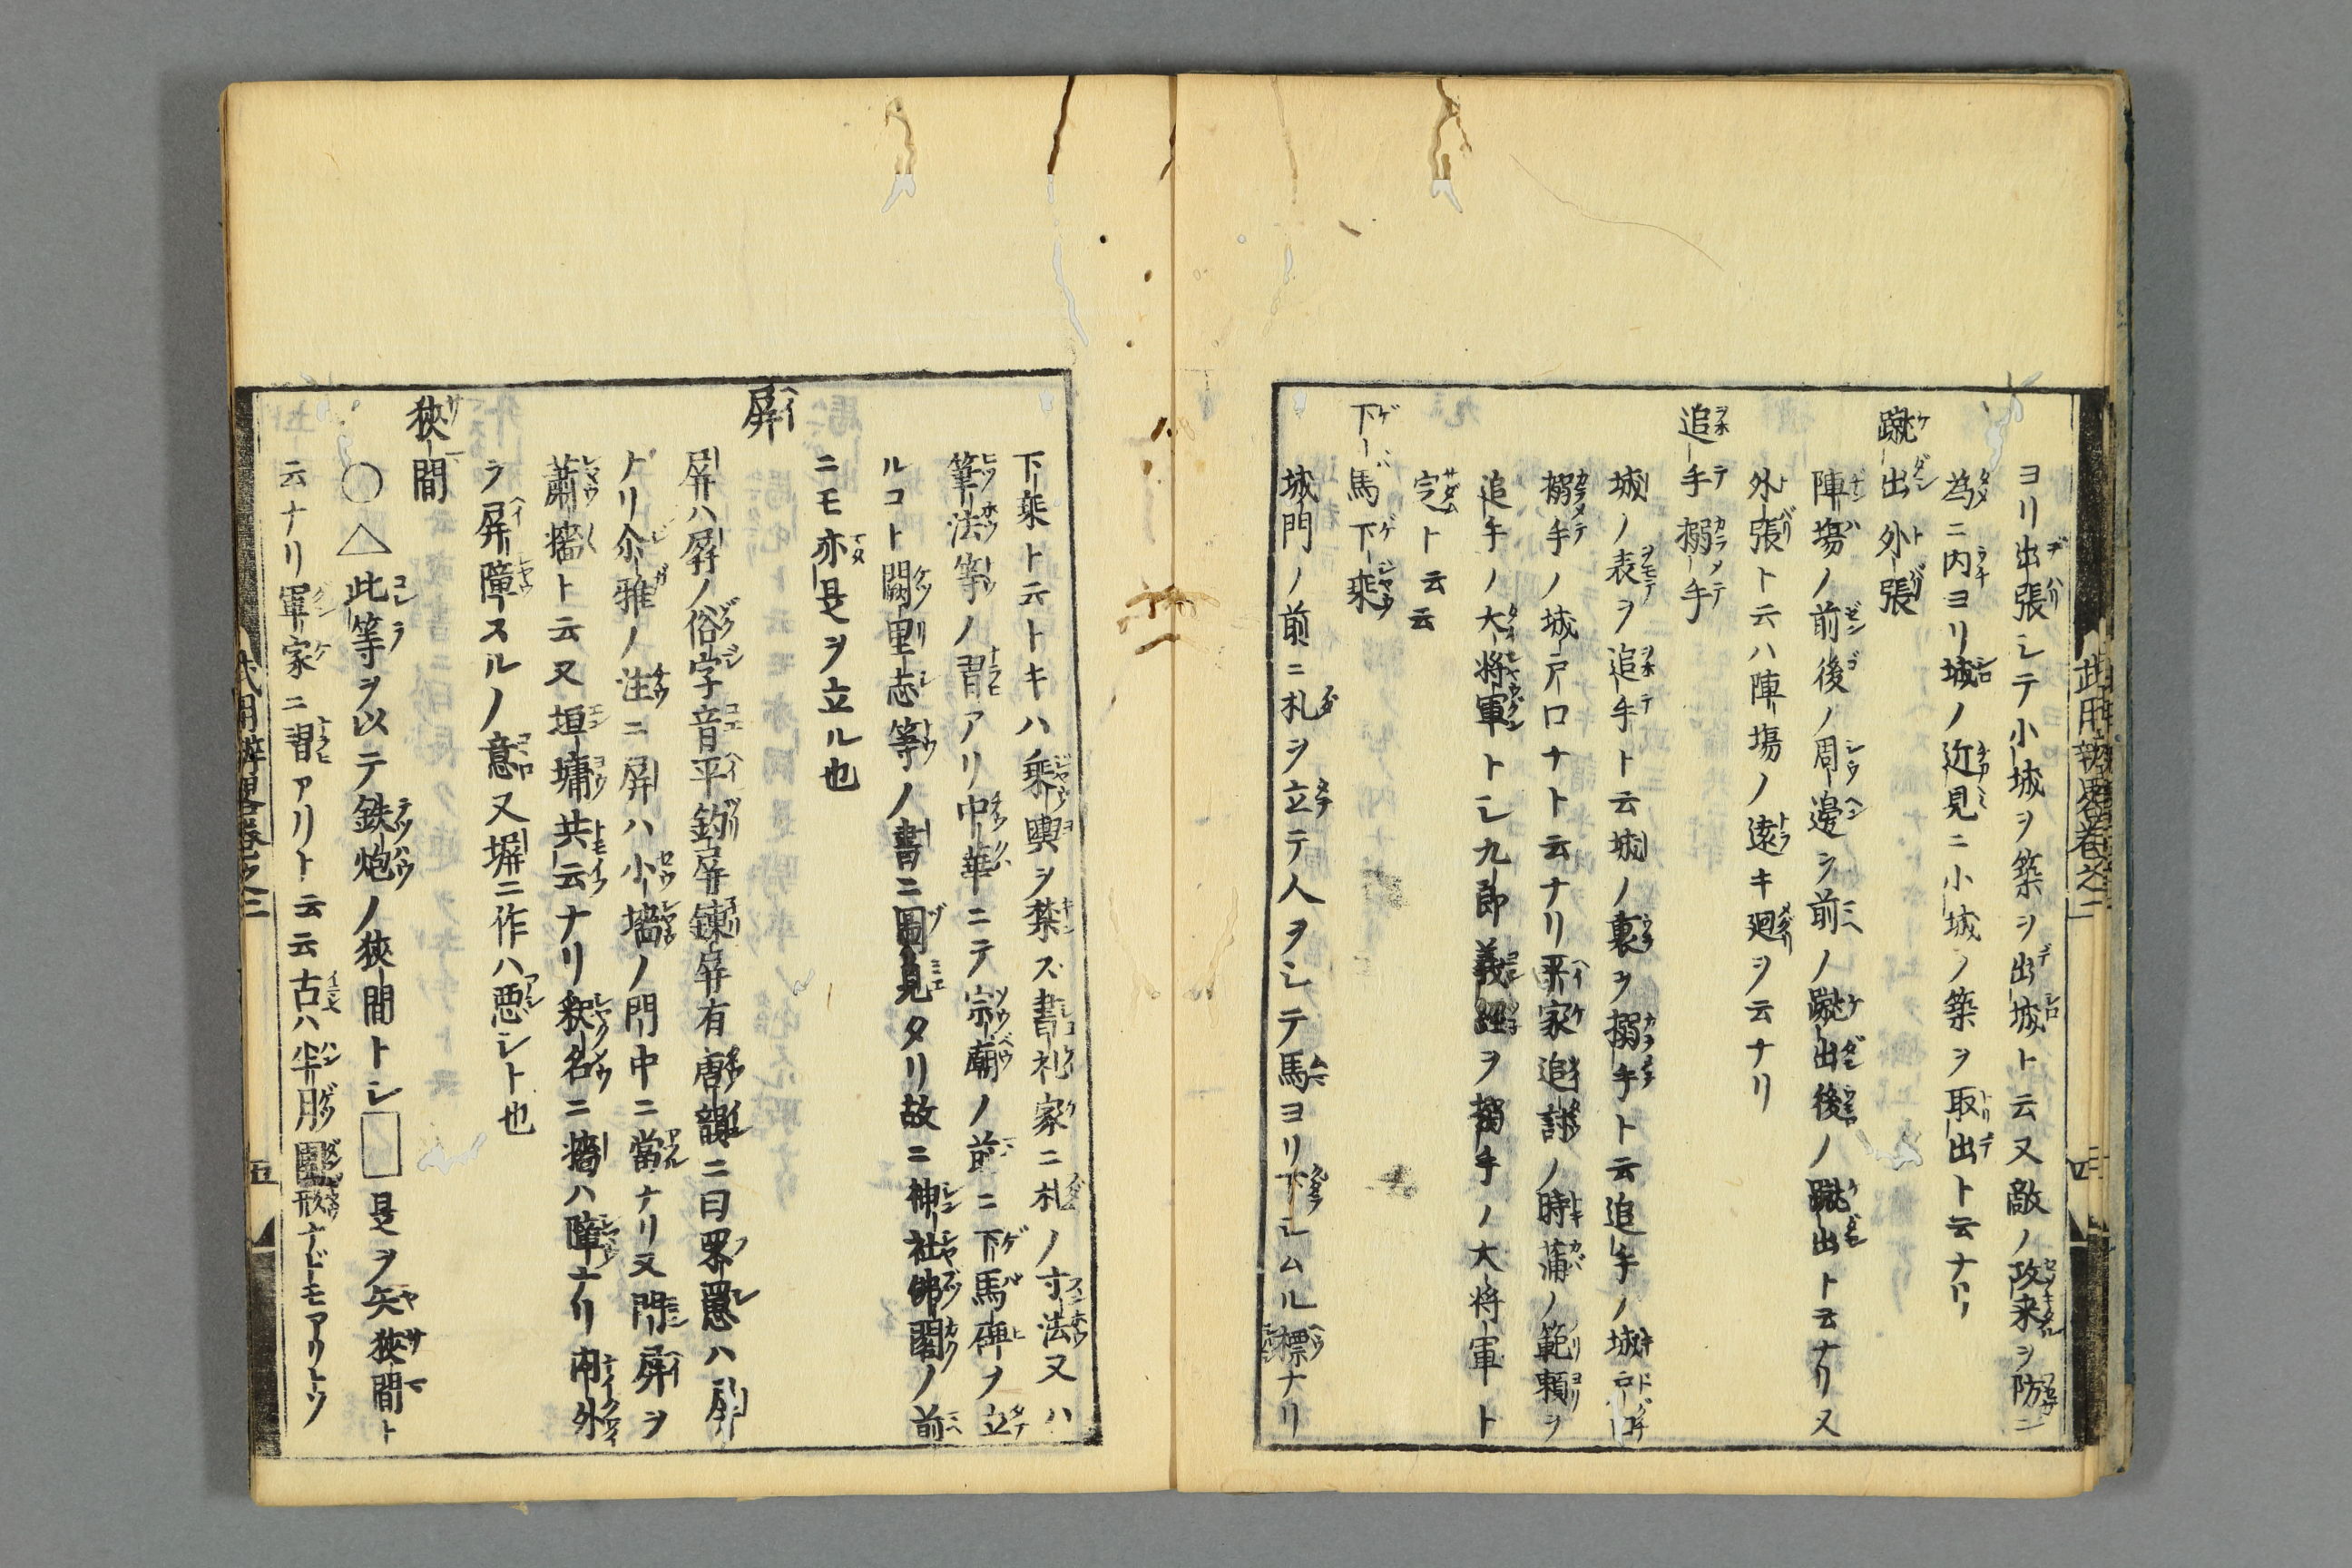 ヨリ出張シテ小城ヲ築シヲ出城ト云又敵ノ攻来ヲ防ニ
為ニ内ヨリ城ノ近見ニ小城ノ築ヲ取出ト云ナリ
蹴出 外張
陣場ノ前後ノ周邊ヲ前ノ蹴出後ノ蹴出ト云ナリ又
外張ト云ハ陣場ノ遠キ廻ヲ云ナリ
追手 搦手
城ノ表ヲ追手ト云城ノ裏ヲ搦手ト云追手ノ城戸口
搦手ノ城戸口ナト云ナリ平家追討ノ時蒲ノ範頼ヲ
追手ノ大将軍トシ九郎義経ヲ搦手ノ大将軍ト
定ト云云
下馬 下乗
城門ノ前ニ札ヲ立テ人ヲシテ馬ヨリ下シムル標ナリ
武用辨畧巻之三
四
下乗ト云トキハ乗輿ヲ禁ズ書札家ニ札ノ寸法又ハ
筆法等ノ習アリ中華ニテ宗廟ノ前ニ下馬碑ヲ立
ルコト闕里志等ノ書ニ圖見タリ故ニ神社佛閣ノ前
ニモ亦是ヲ立ル也
屏
屏ハ屏ノ俗字音平釣屏錬屏有唐韻ニ曰罘罳ハ屏
ナリ尒雅ノ注ニ屏ハ小墻ノ門中ニ當ナリ又門屏ヲ
蕭墻ト云又垣墉共云ナリ釈名ニ墻ハ障ナリ内外
ヲ屏障スルノ意又塀ニ作ハ悪シト也
狹間
○△此等ヲ以テ鉄炮ノ狹間トシ□是ヲ矢狹間ト
云ナリ軍家ニ習アリト云云古ハ半月團形ナドモアリトゾ
武用辨畧巻之三
五